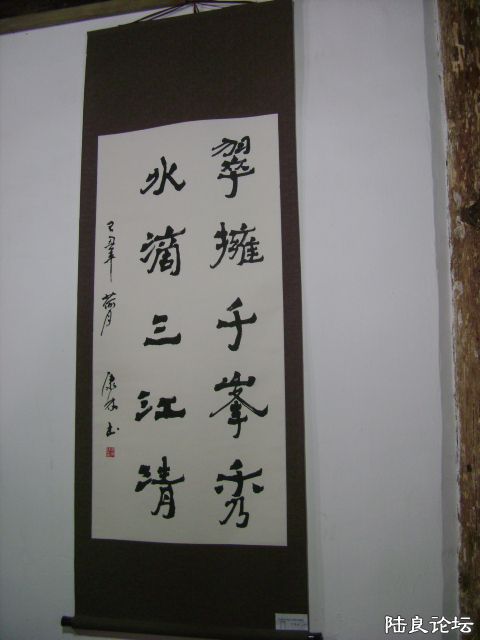 翠擁千峯秀
水滴三江清
己丑年 荷月
康林书
陆良论坛